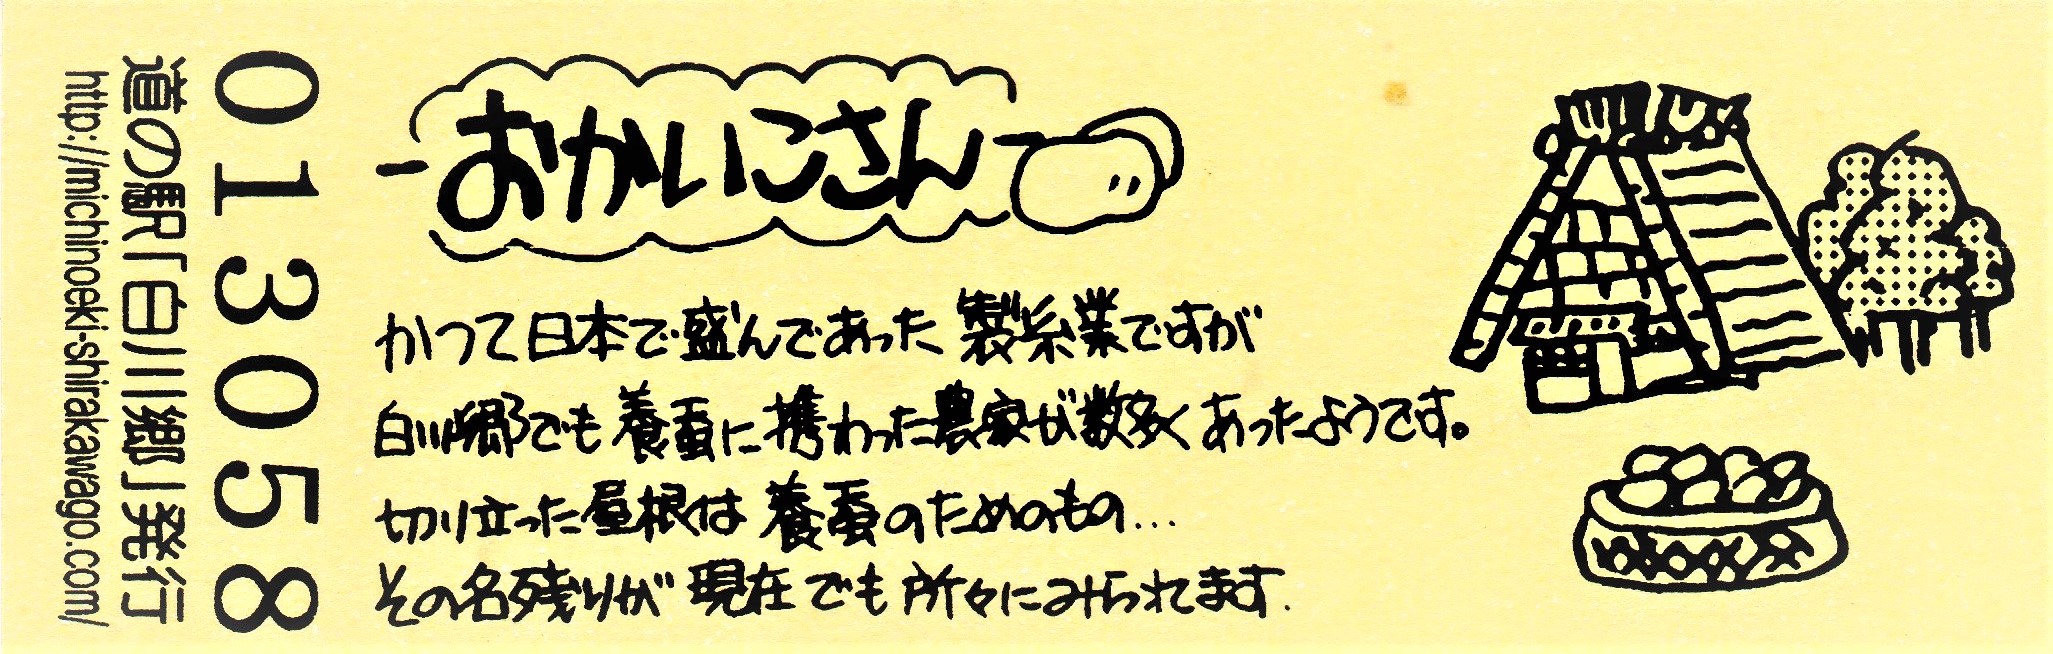 おかいこさん
かつて日本で盛んであった製糸業ですが
白川郷でも養蚕に携わった農家が数多くあったようです。
切り立った屋根は養蚕のためのもの…
その名残りが現在でも所々にみられてます.
013058
道の駅「白川郷」発行
http://michinoeki-shirakawago.com/